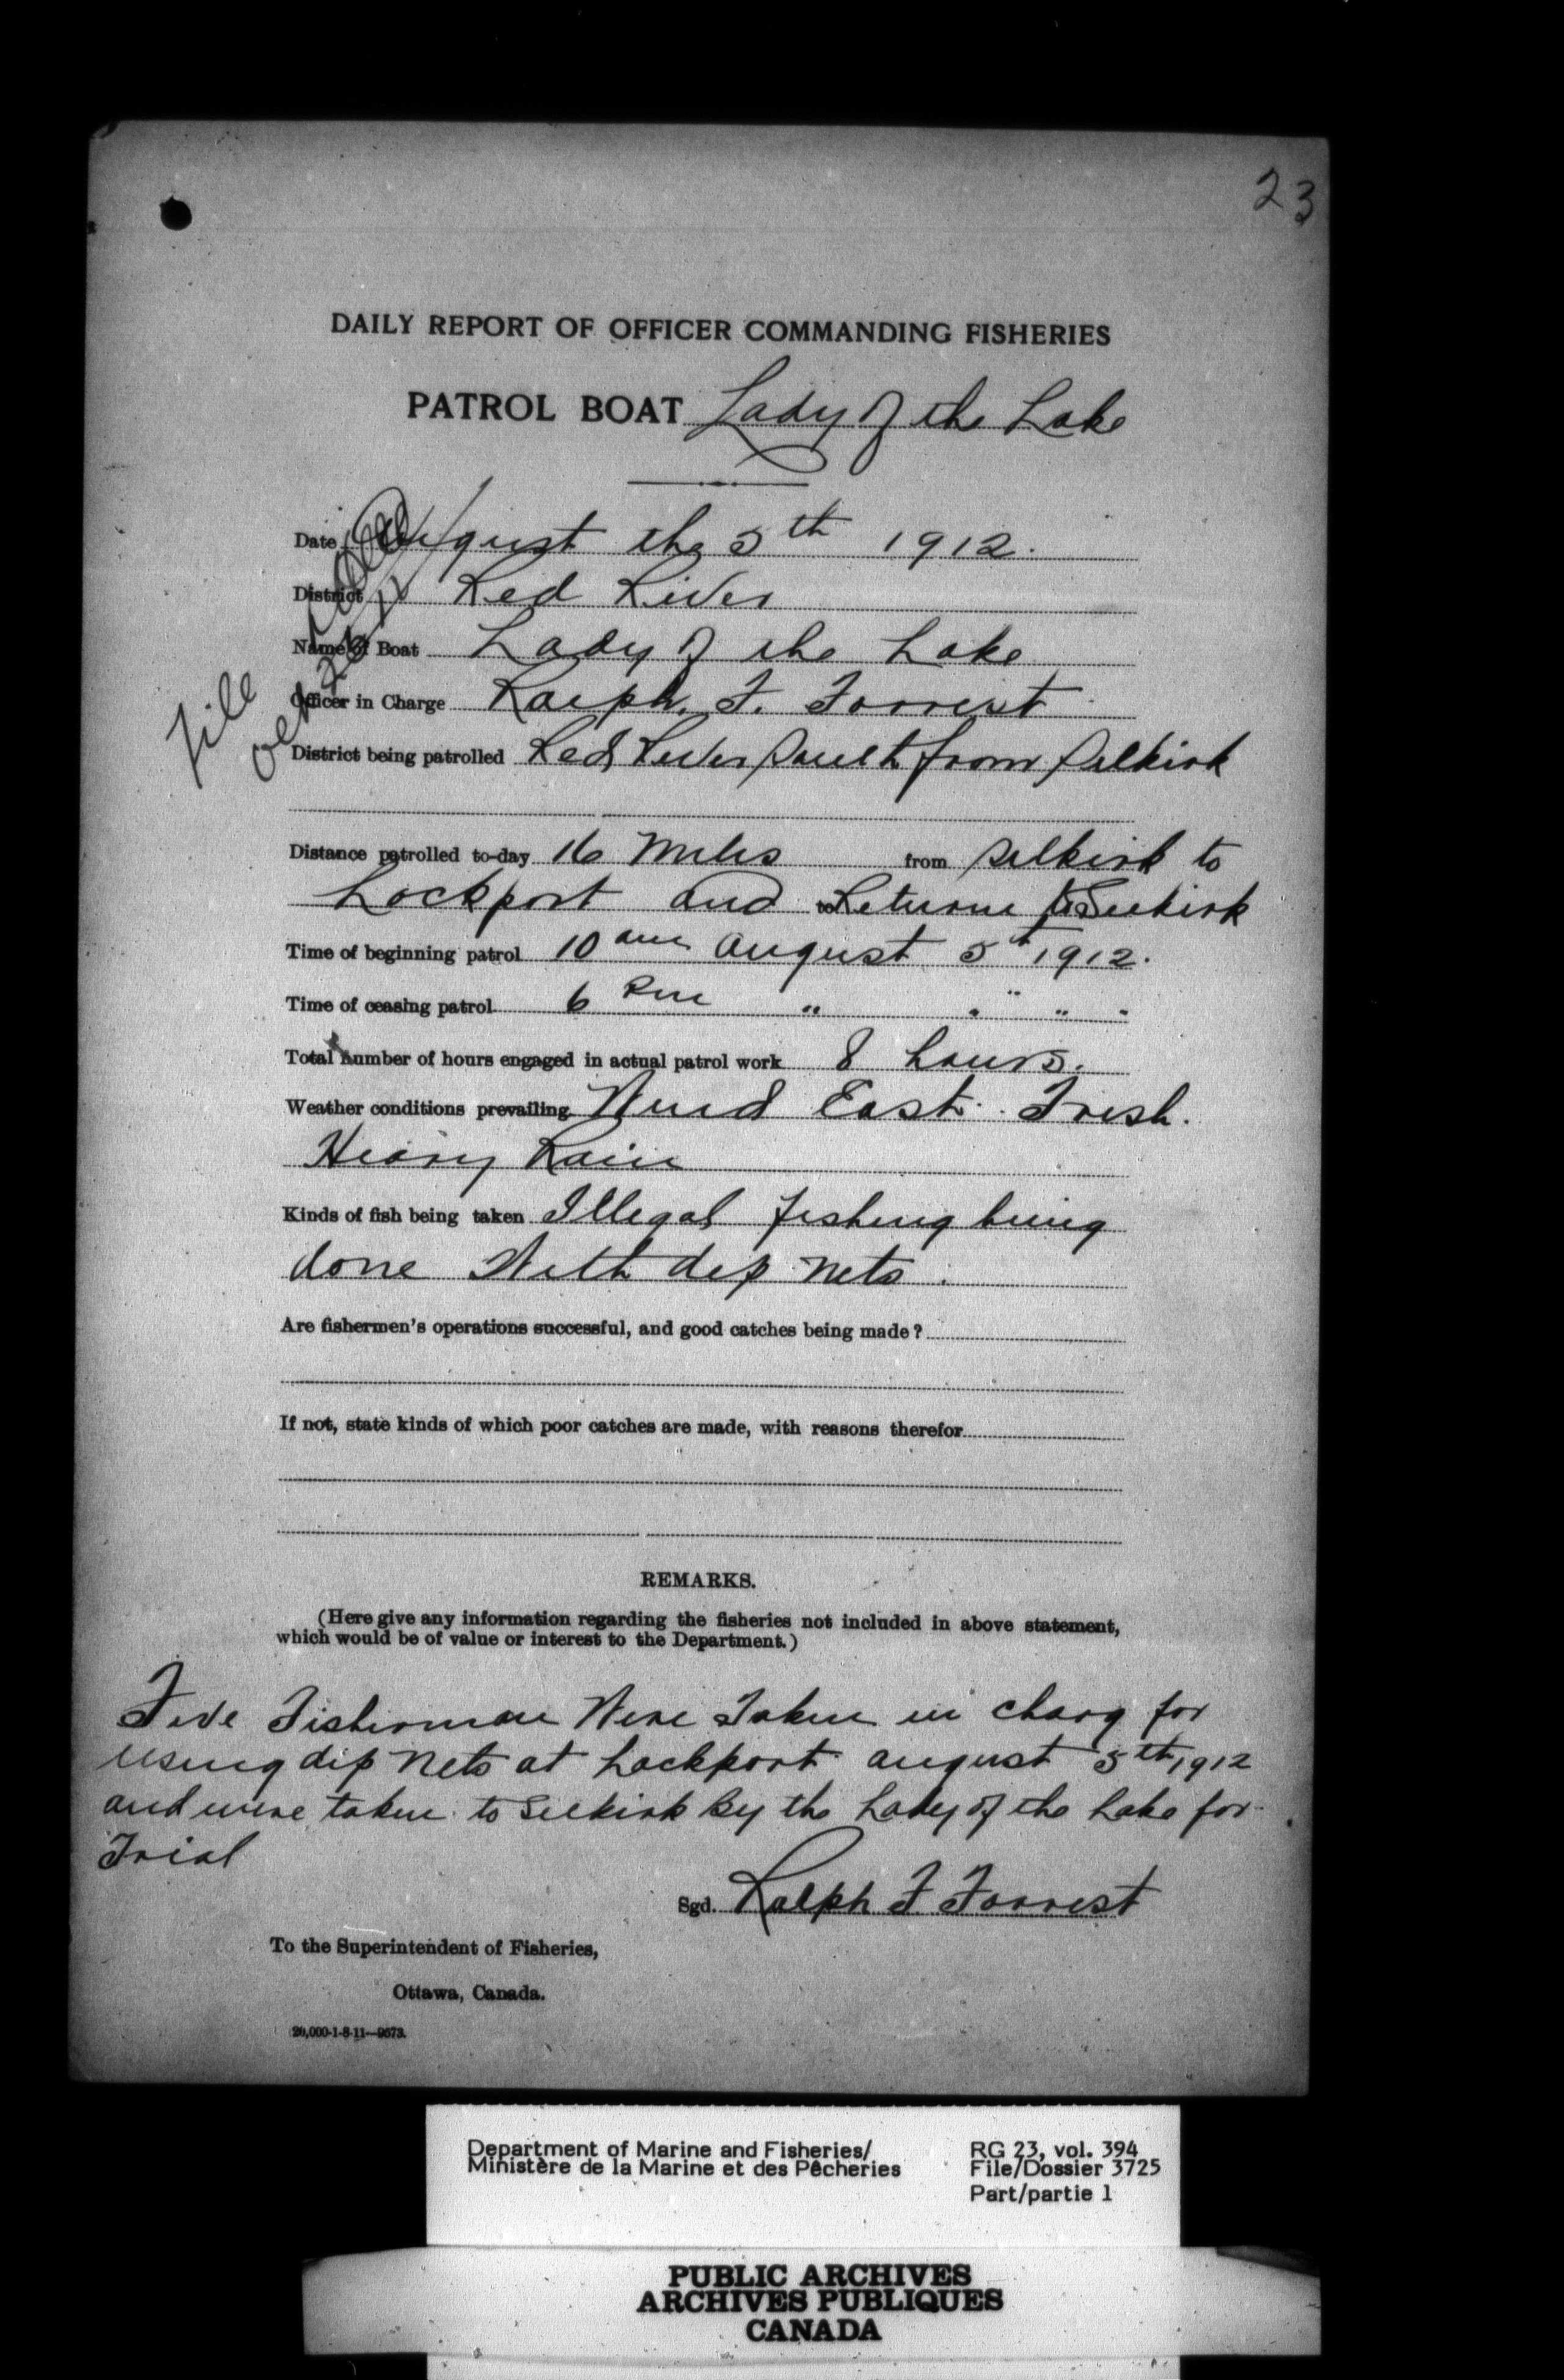 23
DAILY REPORT OF OFFICER COMMANDING FISHERIES
PATROL BOAT Lady of the Lake
Date August the 5th 1912.
District Red River
Name of Boat Lady of the Lake
File
Officer in Charge Ralph. F. Forrest
District being patrolled Red River South from Selkirk
Distance patrolled to-day 16 Miles from Selkirk to
Lockport and to Return to Selkirk
Time of beginning patrol 10 am August 5th 1912.
Time of ceasing patrol 6 Pm " " " "
Total number of hours engaged in actual patrol work 8 hours.
Weather conditions prevailing Wind East. Fresh.
Heavy Rain
Kinds of fish being taken Illegal fishing being
done With dip nets.
Are fishermen's operations successful, and good catches being made?
If not, state kinds of which poor catches are made, with reasons therefor
REMARKS.
(Here give any information regarding the fisheries not included in above statement,
which would be of value or interest to the Department.)
Five Fisherman Were Taken in charg for
using dip Nets at Lockport august 5th, 1912
and were taken to Selkirk by the Lady of the Lake for
Trial
Sgd. Ralph F Forrest
To the Superintendent of Fisheries,
Ottawa, Canada.
20,000-1-8-11—9573.
Department of Marine and Fisheries/
Ministère de la Marine et des Pêcheries
RG 23, vol. 394
File/Dossier 3725
Part/partie 1
PUBLIC ARCHIVES
ARCHIVES PUBLIQUES
CANADA